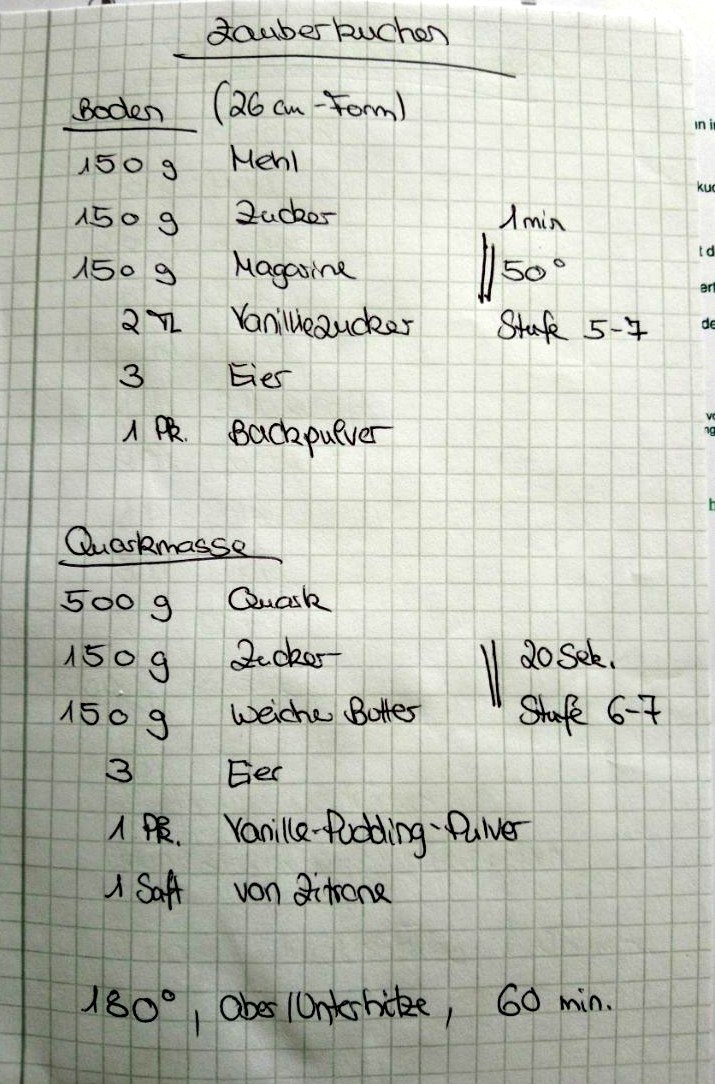 Zauberkuchen
Boden (26 cm-Form)
150 g Mehl
150 g Zucker 1 min
150 g Magarine 50°
2 TL Vanillezucker Stufe 5-7
3 Eier
1 Pk. Backpulver
Quarkmasse
500 g Quark
150 g Zucker 20 Sek.
150 g weiche Butter Stufe 6-7
3 Eier
1 Pk. Vanille-Pudding-Pulver
1 Saft von Zitrone
180°, Ober/Unterhitze, 60 min.